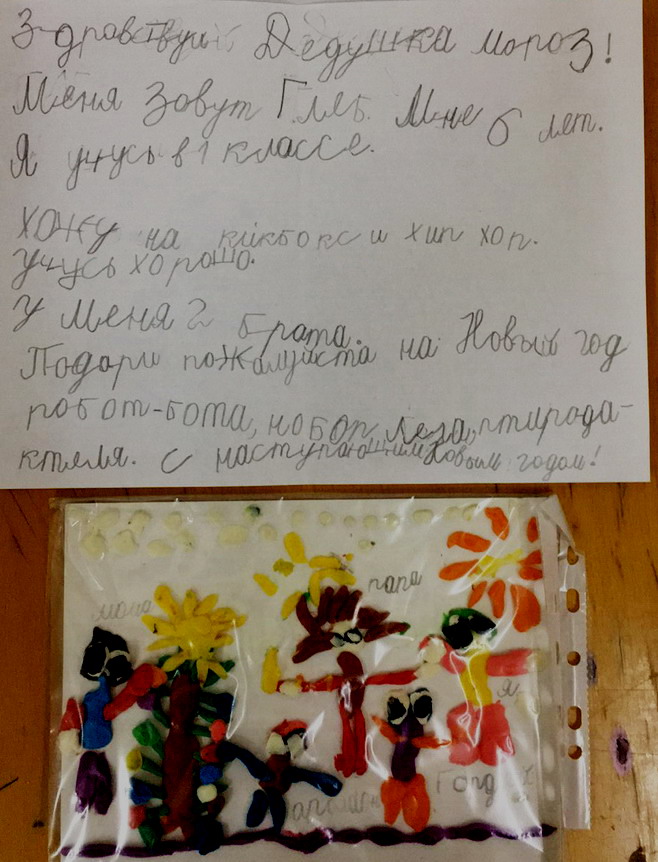 Здравствуй Дедушка мороз!
Меня Зовут Глеб. Мне 6 лет.
Я учусь в 1 классе.
хожу на кикбокс и хип хоп.
учусь хорошо.
У меня 2 брата.
Подари пожалуйста на Новый год
робот-бота, нобор Лего, птирода-
ктеля. с наступающим Новым годом!
папа
мама
я